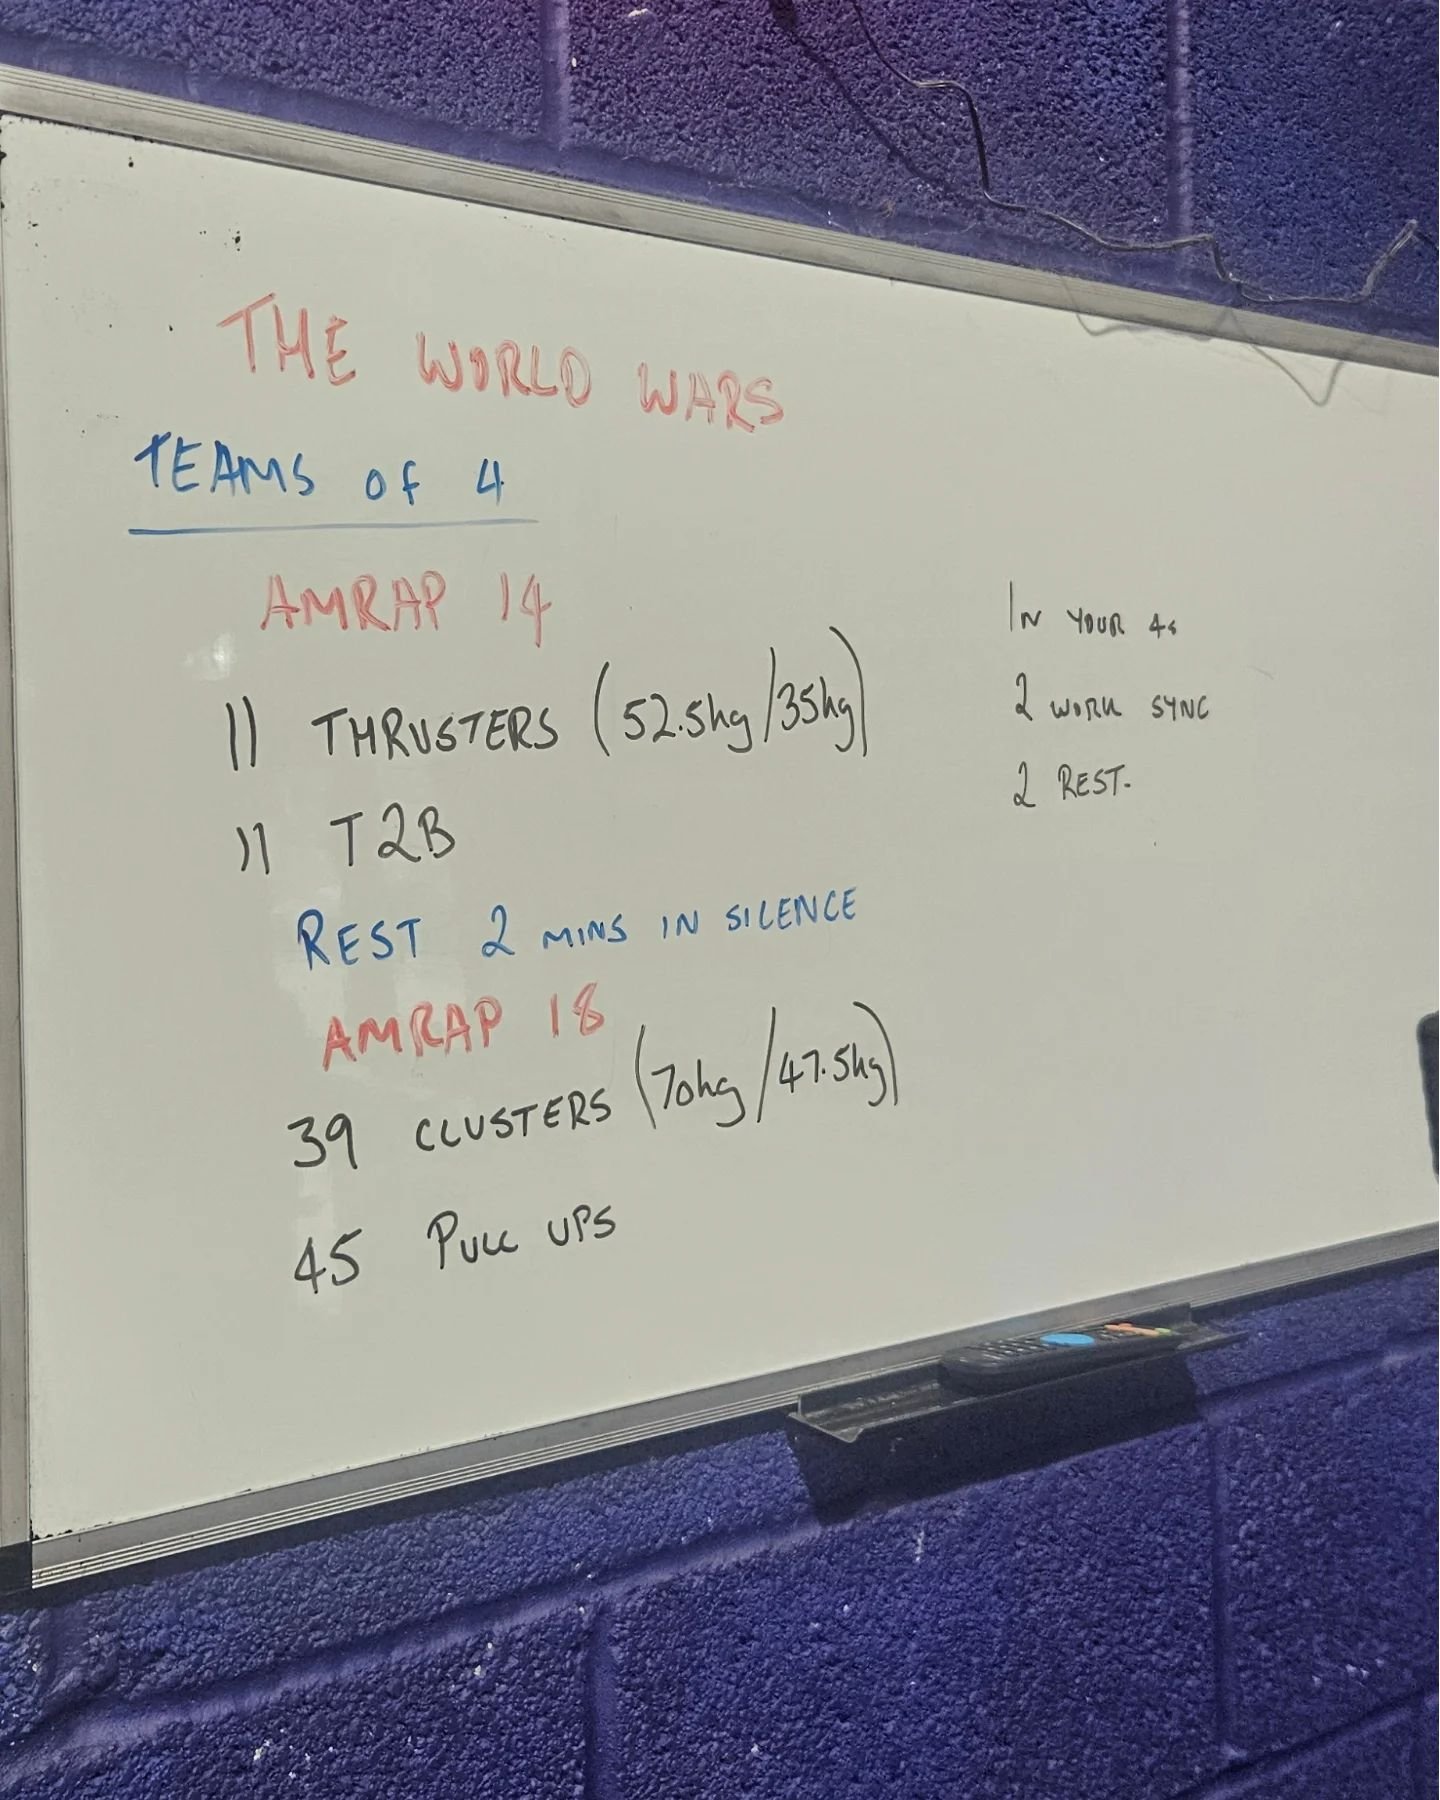 THE WORLD WARS
TEAMS OF 4
AMRAP 14
11 THRUSTERS (52.5kg/35kg)
11 T2B
REST 2 MINS IN SILENCE
AMRAP 18
39 CLUSTERS (70kg/47.5kg)
45 PULL UPS
IN YOUR 4s
2 WORK SYNC
2 REST.